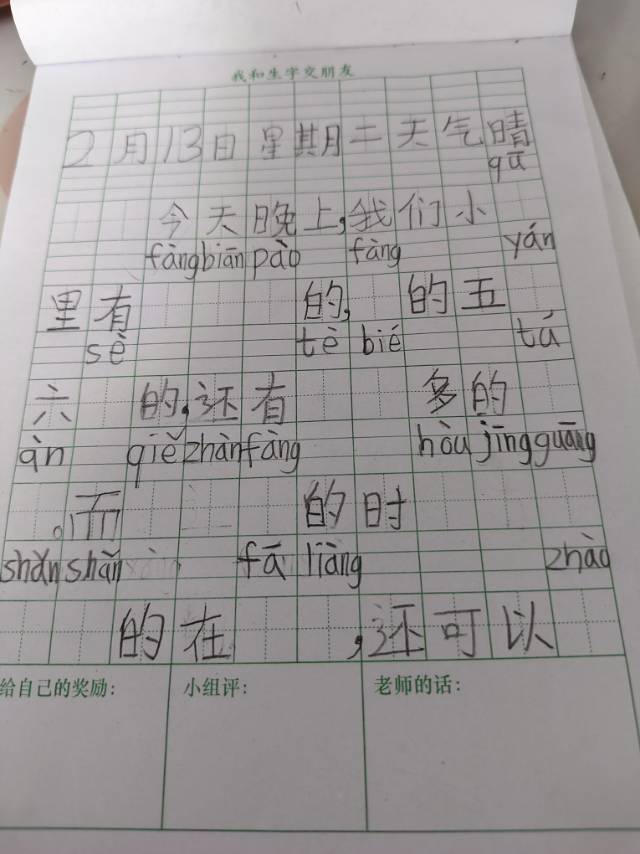 我和生字交朋友
2月13日星期二天气晴
qū
今天晚上,我们小
fàng biān pào fàng yán
里有 的, 的五
sè tè bié tú
六 的,还有 多的
àn qiě zhàn fàng hòu jīng guāng
。而 的时
shǎn shǎn fā liàng zhào
的在 ,还可以
给自己的奖励: 小组评: 老师的话: